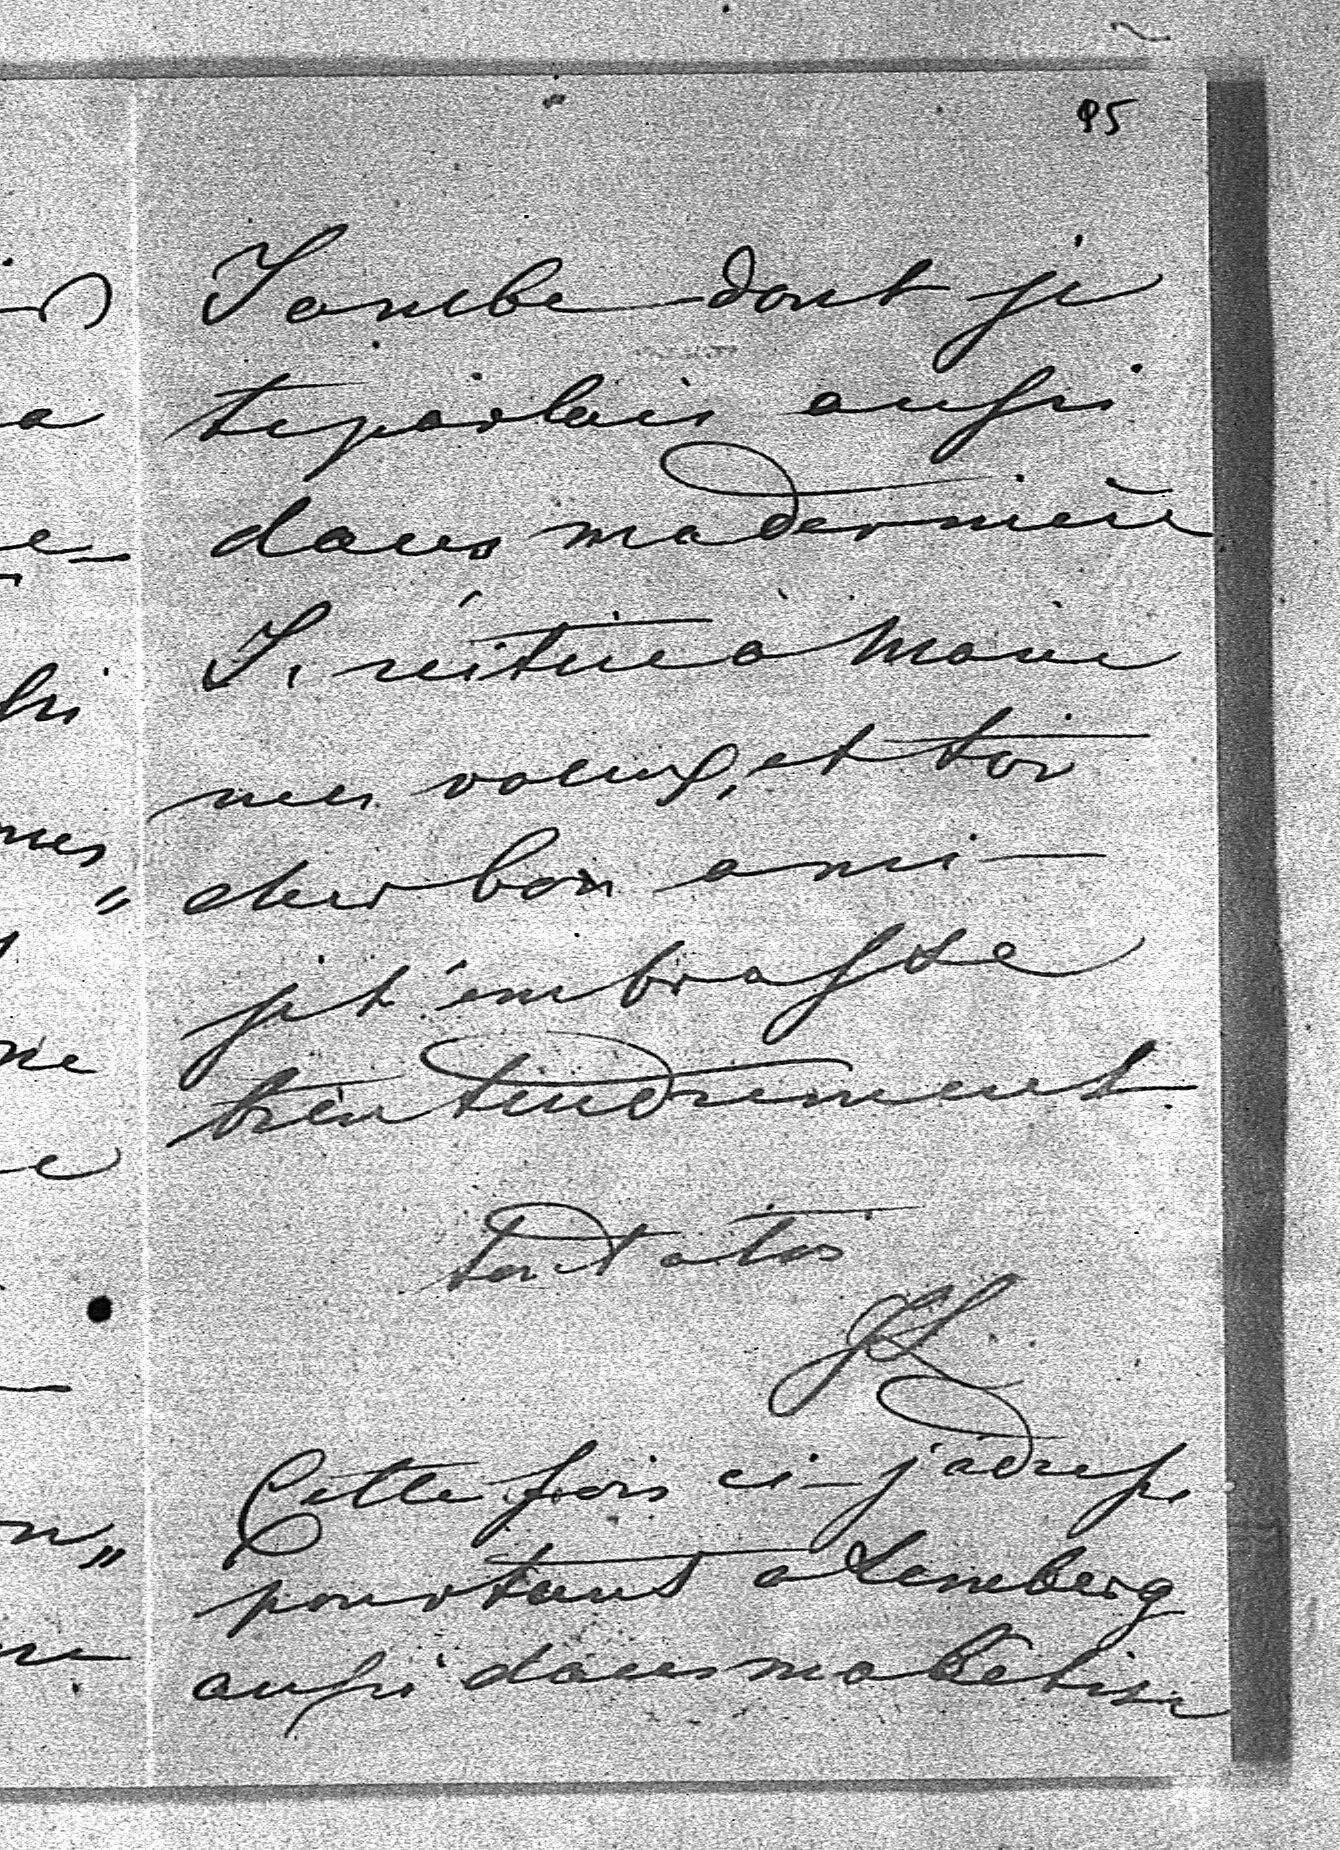 95
Jambe dont je
te parlais aussi
dans ma dernière
J, réitue à Marie
mes voeux, et toi
cher bon ami —
je t'embrasse
bien tendrement
tout à toi
JL
Cette fois ci j'adresse
pourtant a Lemberg
aussi dans ma bêtise